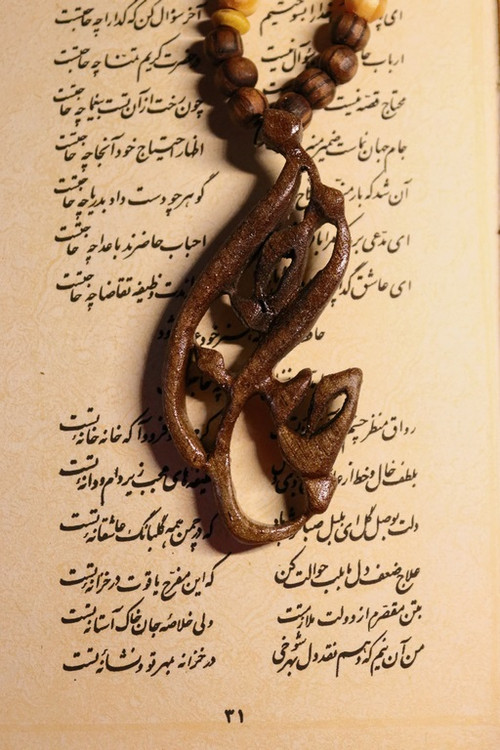 ای خدا را بسوختیم آخر سؤال کن که گدا را چه حاجتست
ارباب سؤال نیست در حضرت کریم تمنا چه حاجتست
محتاج قصه نیست چون رخت از آن تست بیغما چه حاجتست
جام جهان نماست ضمیر اظهار احتیاج خود آنجا چه حاجتست
آن شد که بار گوهر چو دست داد بدریا چه حاجتست
ای مدعی برو احباب حاضرند باعدا چه حاجتست
ای عاشق گدا وظیفه تقاضا چه حاجتست
هنر خود شود
رواق منظر چشم فرود آ که خانه خانه تست
بلطف خال و خط از لطیفه‌های عجب زیر دام و دانه تست
دلت بوصل گل ای بلبل صبا که در چمن همه گلبانگ عاشقانه تست
علاج ضعف دل ما بلب حوالت کن که این مفرح یاقوت در خزانه تست
بتن مقصرم از دولت ملازمتت ولی خلاصه جان خاک آستانه تست
من آن نیم که دهم نقد دل بهر شوخی در خزانه بمهر تو و نشانه تست
۳۱